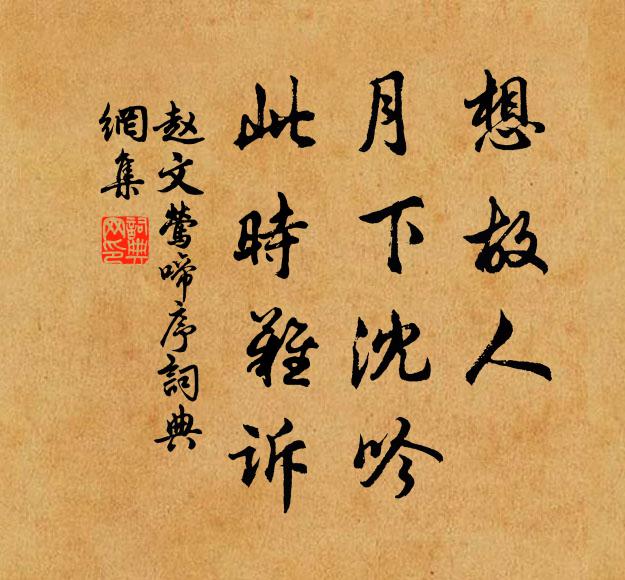 想故人
月下沈吟
此時難訴
赵文鶯啼序詞典
網集
詞典
网印